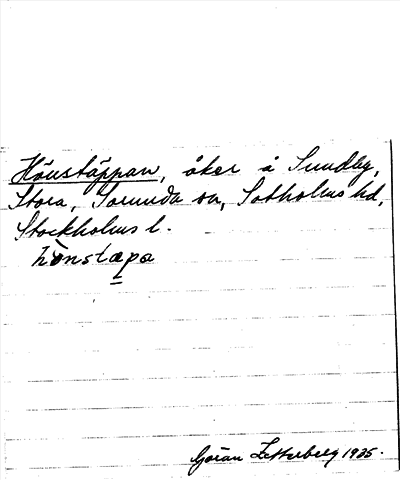 Hönstäppan, åker å Sundby,
Stora, Sorunda sn, Sotholms hd,
Stockholms l.
hònstæpa
Göran Zetterberg 1935.